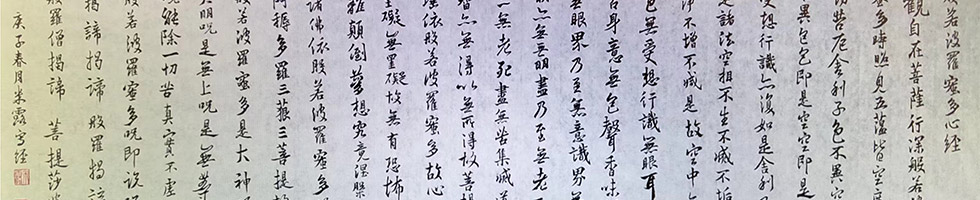 般若波羅蜜多心經
觀自在菩薩行深般若
蜜多時照見五蘊皆空度
切苦厄舍利子色不異空
異色色即是空空即是
受想行識亦復如是舍利
是諸法空相不生不滅不垢
淨不增不減是故空中
色無受想行識無眼耳
舌身意無色聲香味
無眼界乃至無意識界
亦無無明盡乃至無老
無老死盡無苦集滅道
亦無得以無所得故菩提
埵依般若波羅蜜多故心
罣礙無罣礙故無有恐怖
離顛倒夢想究竟涅槃
諸佛依般若波羅蜜多
阿耨多羅三藐三菩提
般若波羅蜜多是大神
大明呪是無上呪是無等
呪能除一切苦真實不虛
般若波羅蜜多呪即說
揭諦揭諦 般羅揭諦
般羅僧揭諦 菩提莎婆
庚子春月米露寫經